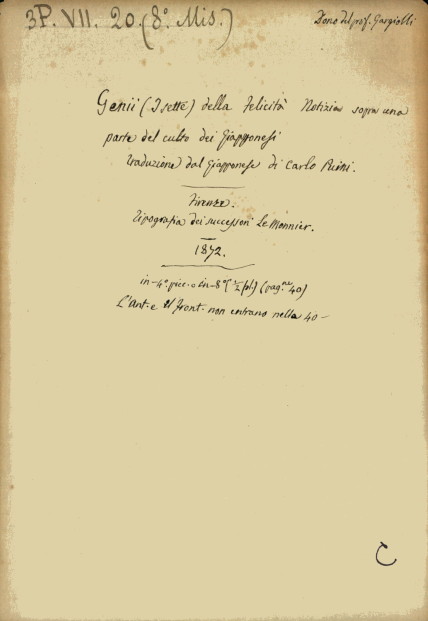 3P. VII. 20. (8º. Mis.)
Dono del prof. Gargiolli
Genii (I sette) della felicità Notizia sopra una
parte del culto dei Giapponesi
traduzione dal Giapponese di Carlo Puini.
Firenze.
Tipografia dei successori Le Monnier.
1872.
in-4º. picc. o in-8º (pag.ne 40)
L'Ant. e il front. non entrano nella 40 -
C